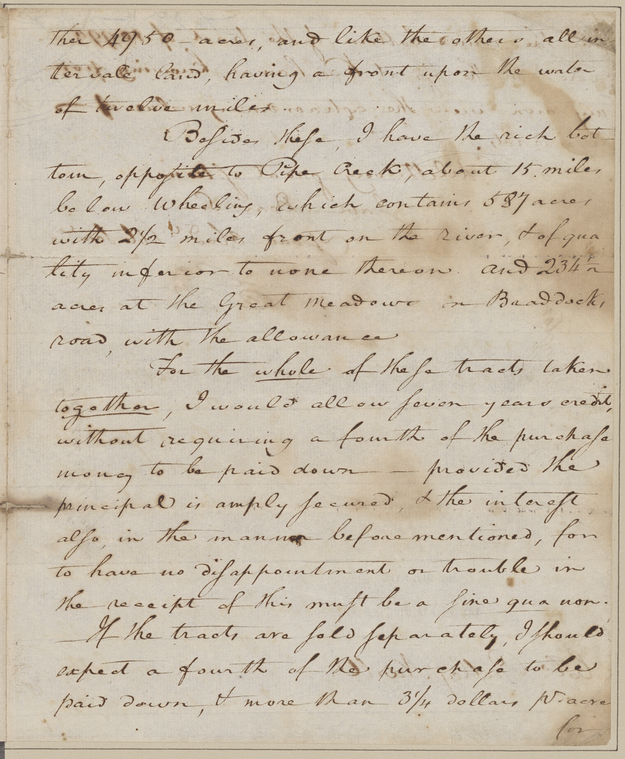 ther 4950 acres, and like the others all in
tervale land, having a front upon the water
of twelve miles
Besides these, I have the rich bot
tom, opposite to Pipe Creek, about 15 miles
below Wheeling, which contains 587 acres
with 2½ miles front on the river, & of qua
lity inferior to none thereon. And 234
acres at the Great meadows on Braddocks
road, with the allowance
For the whole of these tracts taken
together, I would allow seven years credit,
without requiring a fourth of the purchase
money to be paid down — provided the
principal is amply secured, & the interest
also, in the manner before mentioned, for
to have no disappointment or trouble in
the receipt of this must be a sine qua non.
If the tracts are sold separately, I should
expect a fourth of the purchase to be
paid down, & more than 3¼ dollars pr acre
for